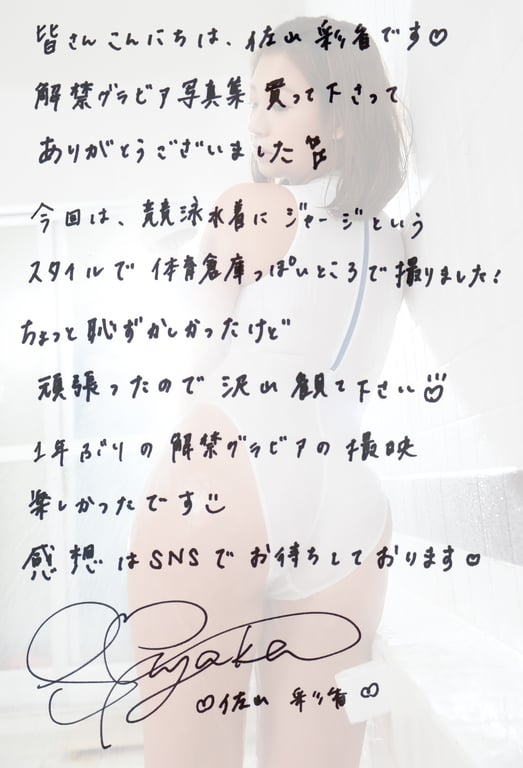 皆さんこんにちは、佐山 彩香です♡
解禁グラビア写真集 買って下さって
ありがとうございました
今回は、競泳水着に ジャージという
スタイルで 体育倉庫っぽいところで撮りました!
ちょっと恥ずかしかったけど
頑張ったので 沢山 観て下さい
1年ぶりの解禁グラビアの撮映
楽しかったです
感想はSNSでお待ちしております♡
Sayaka
♡佐山 彩香♡